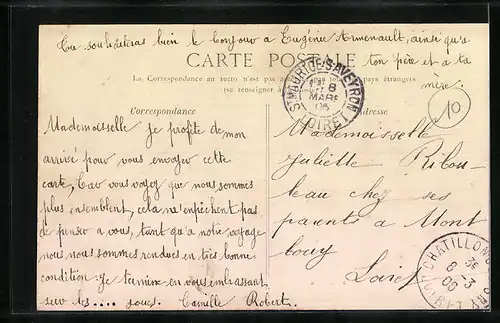 Tu souhaiteras bien le bonjour a Eugénie Armenault, ainsi qu'a
ton père et à ta
mère
CARTE POSTALE
La Correspondance au recto n'est pas pays étrangers
(se renseigner
ST MAURICE-S-AVEYRON
8
MARS
05
LOIRET
10
Correspondance
Mademoiselle je profite de mon
arrivé pour vous envoyer cette
carte, Car vous voyez que nous sommes
plus ensemblent, cela ne m'enpêchent pas
de penser a vous, tant qu'a notre voyage
nous nous sommes rendues en très bonne
condition. Je termine en vous embrassant
sur les .... joues. Camille Robert.
Adresse
Mademoisselle
Juliette Ribou-
leau chez ses
parents a Mont
bouy
Loiret
CHATILLON
3E
8-3
05
LOIRET